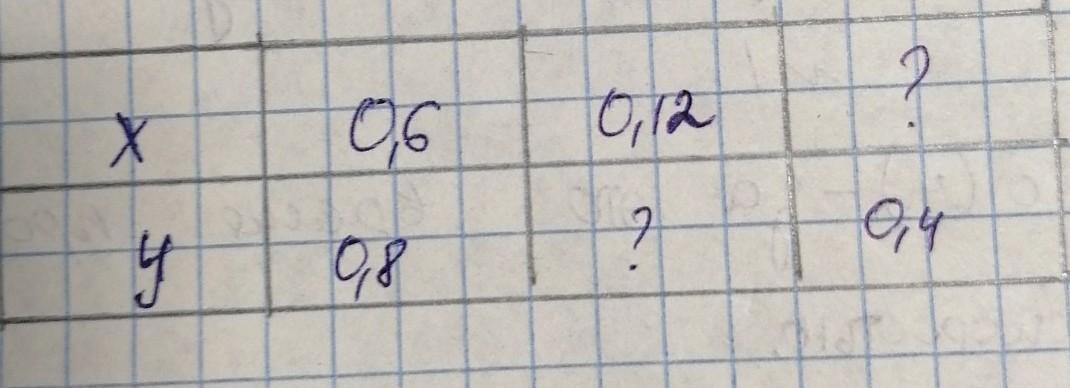 x 0,6 0,12 ?
y 0,8 ? 0,4